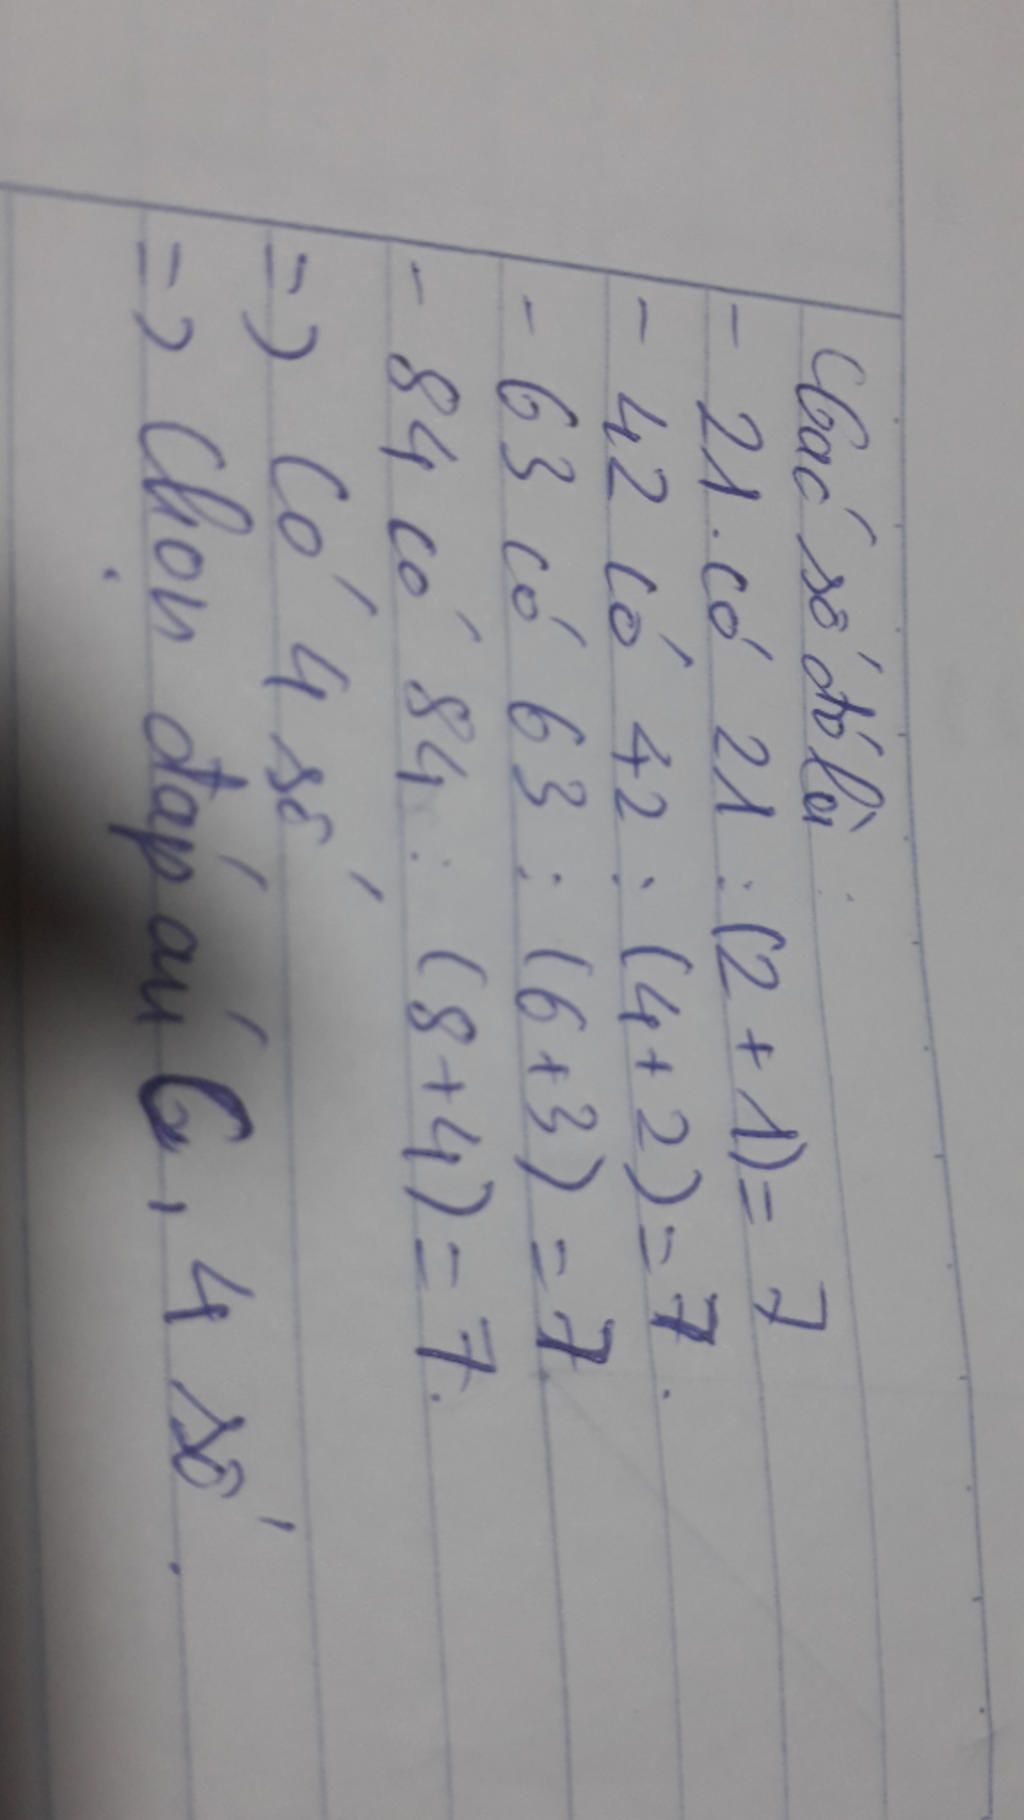 Các số đó là:
- 21 có 21 : (2 + 1) = 7
- 42 có 42 : (4 + 2) = 7.
- 63 có 63 : (6 + 3) = 7.
- 84 có 84 : (8 + 4) = 7.
=) Có 4 số
=) Chọn đáp án C, 4 số.